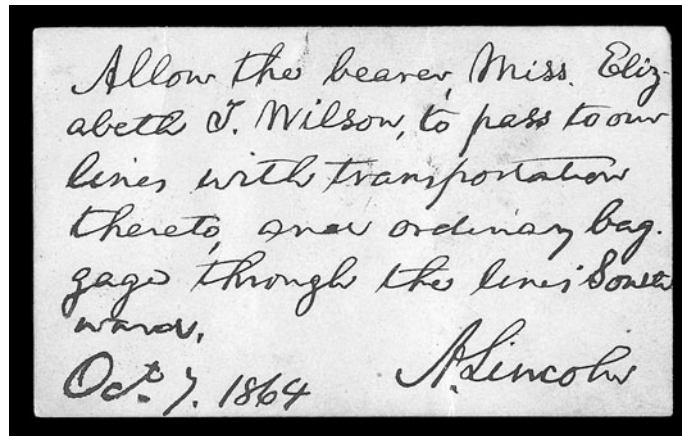 Allow the bearer, Miss. Eliz-
abeth J. Wilson, to pass to our
lines with transportation
thereto, and ordinary bag-
gage through the lines South
ward.
Oct. 7. 1864 A. Lincoln